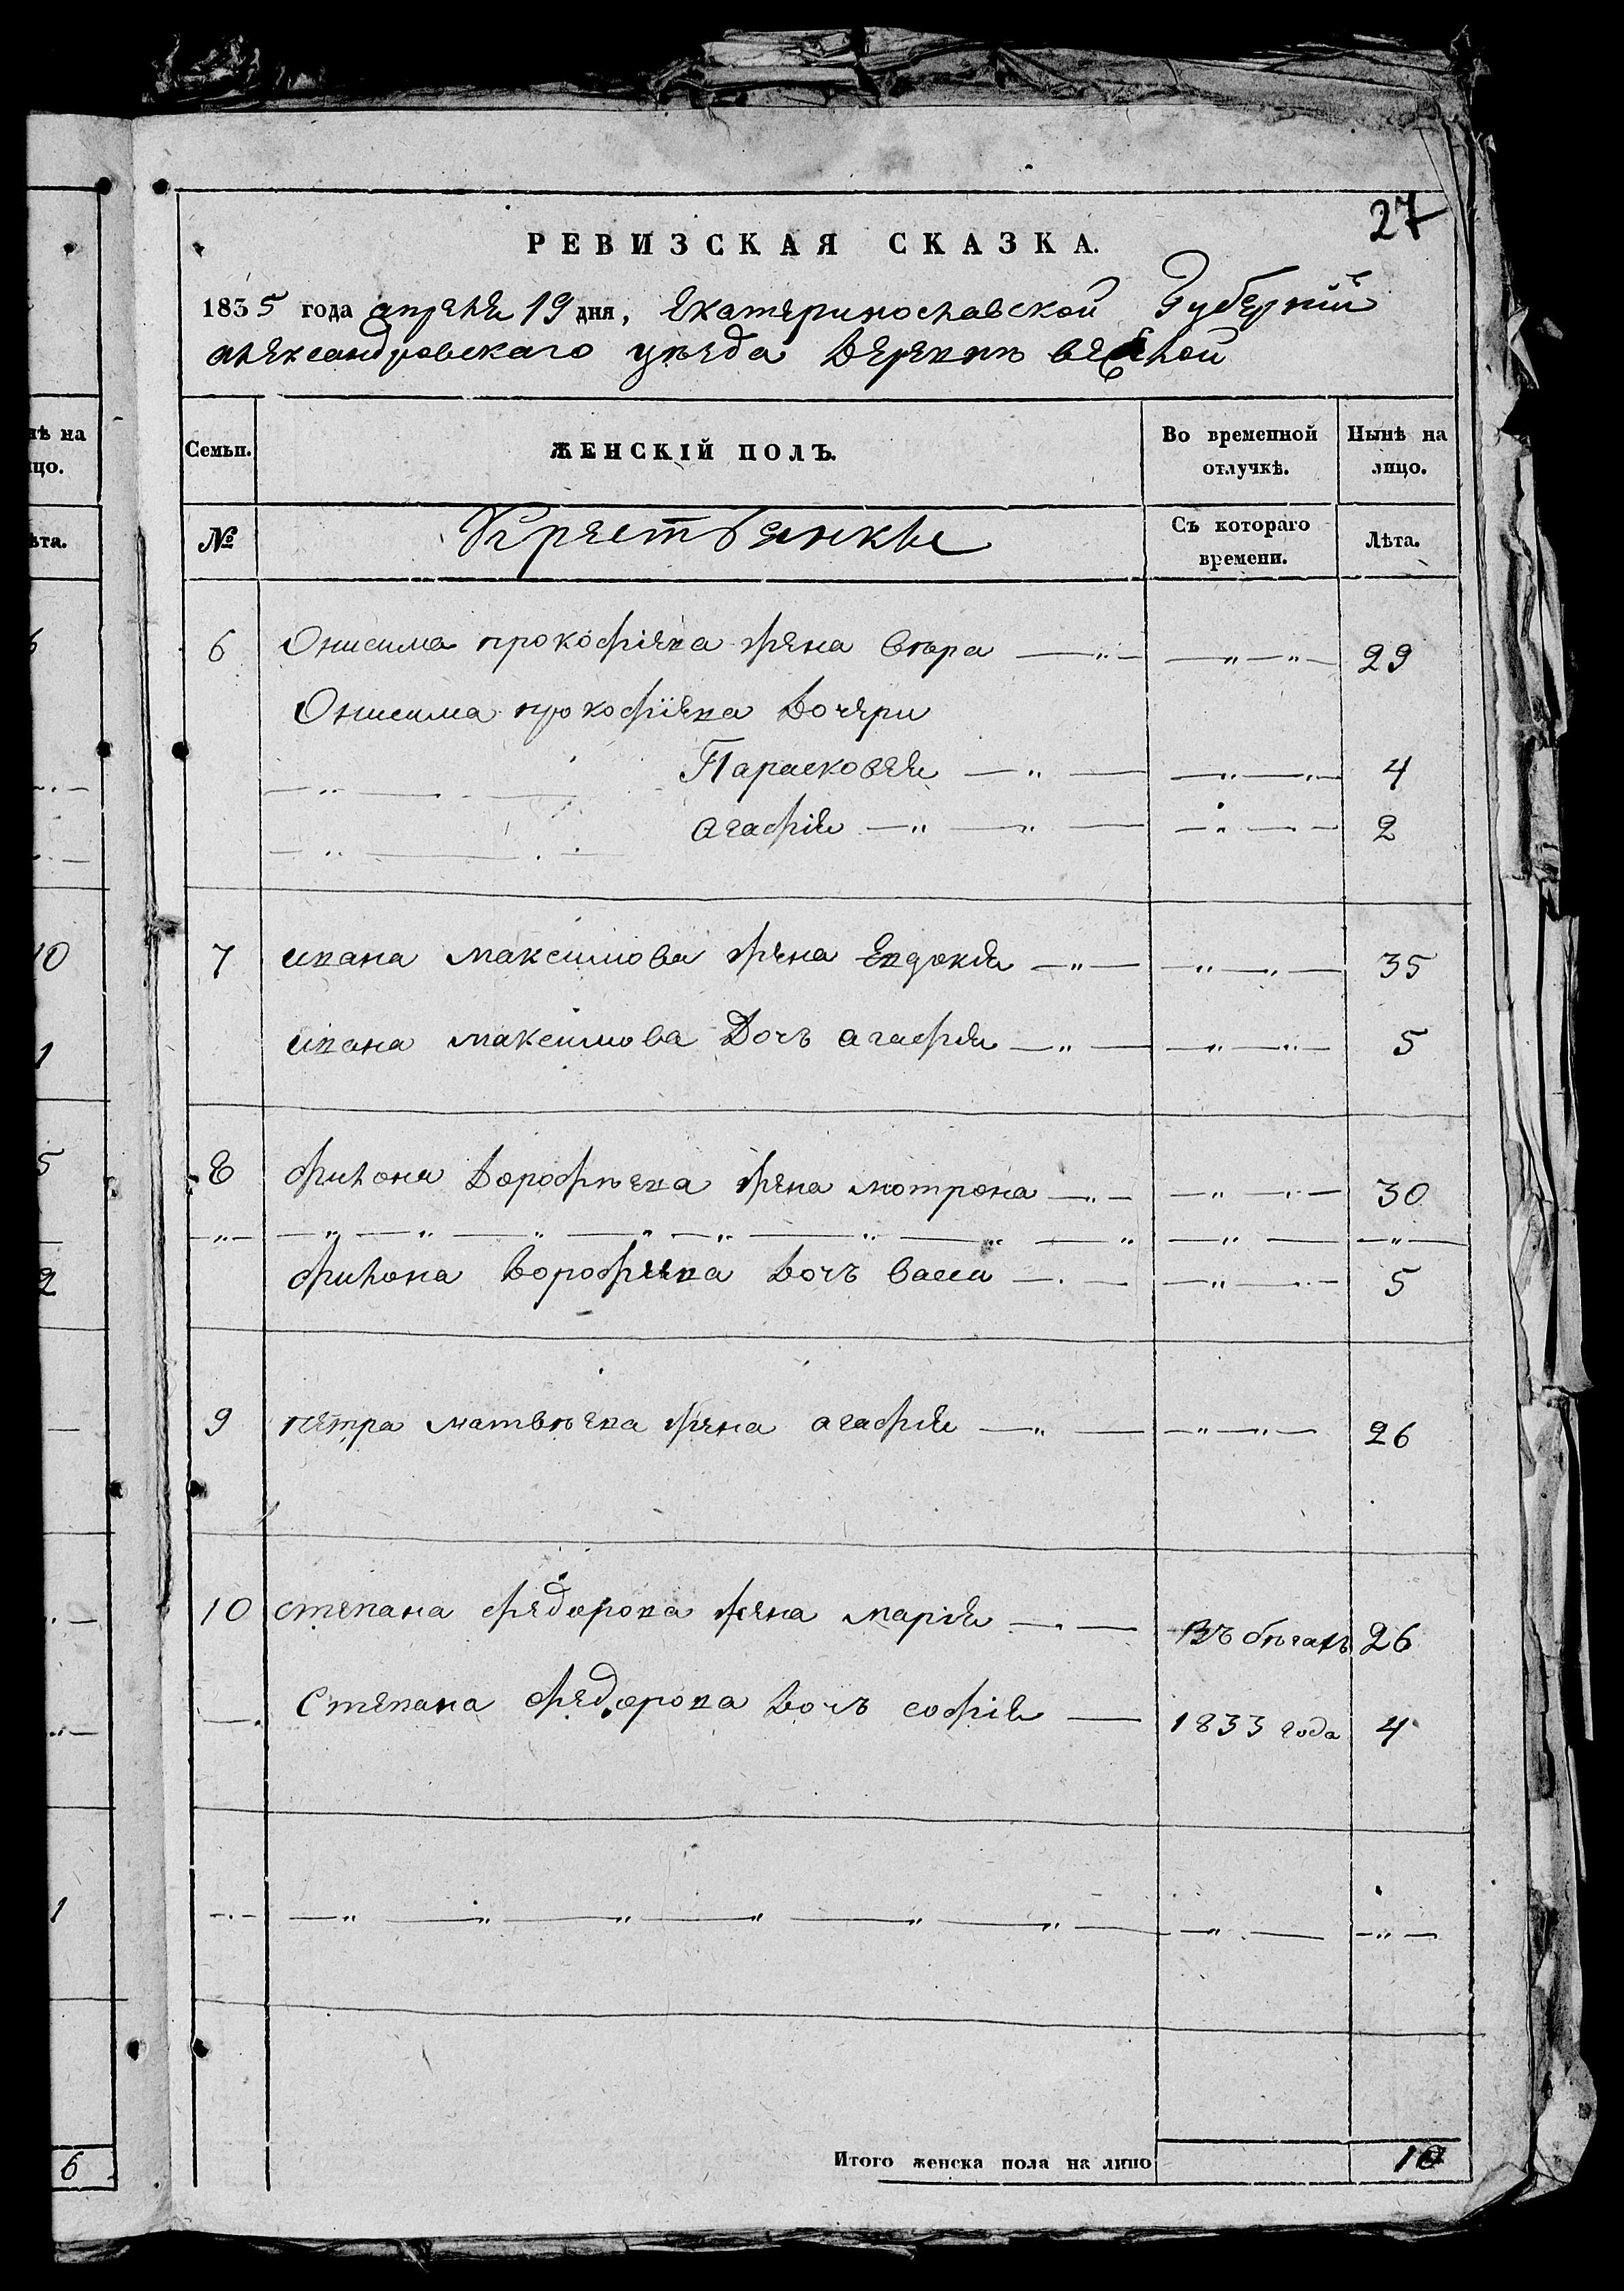 27
РЕВИЗСКАЯ СКАЗКА.
1835 года апреля 19 дня, Екатеринославской Губернiи
александровскаго уѣзда Деревнѣ
Семьи. ЖЕНСКIЙ ПОЛЪ. Во временной отлучкѣ. Нынѣ на лицо.
№ Крестьянкы Съ котораго времени. Лѣта.
6 Онисима прокофiева жена вѣра 29
Онисима прокофiева дочери
Парасковея 4
агафiя 2
7 ивана максимова жена Евдокiя 35
ивана максимова Дочъ агафiя 5
8 филона дорофѣева жена мотрона 30
филона дорофеева дочъ васса 5
9 петра матвѣева жена агафiя 26
10 степана федорова жена марiя Въ бѣгахъ 26
Степана федорова дочъ софiя 1833 года 4
Итого женска пола на лицо 10
нѣ на
ицо.
ѣта.
10
1
5
2
1
6